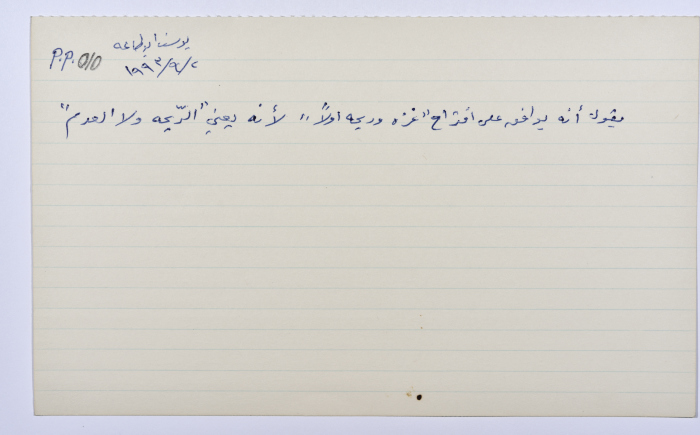 P.P. 010
يوسف
١٩٩٣/٩/٢
يقول أنه يوافق على اقتراح "غزه وريحه اولاً" لأنه يعني "الرّيحه ولا العدم"